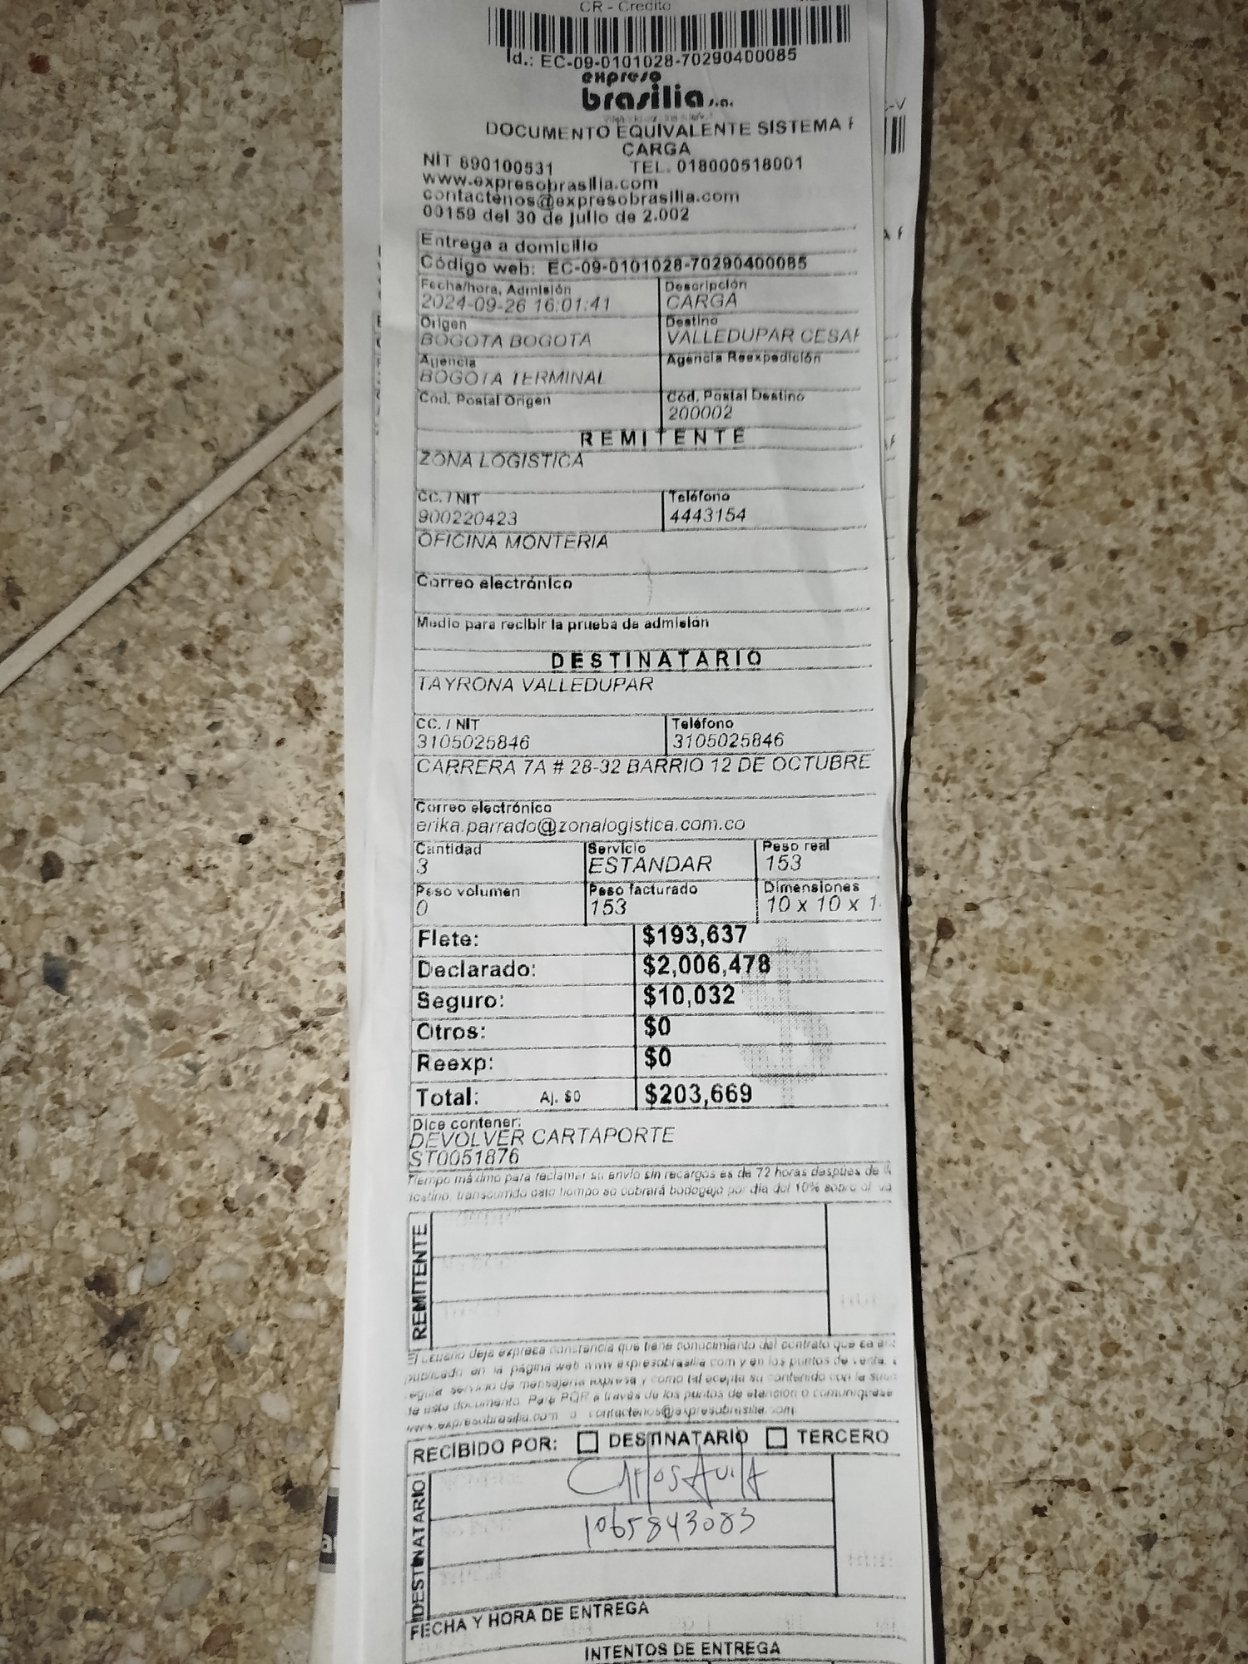 CR - Credito
Id.: EC-09-0101028-70290400085
expreso
brasilia s.a.
DOCUMENTO EQUIVALENTE SISTEMA
CARGA
NIT 890100531 TEL. 018000518001
www.expresobrasilia.com
contactenos@expresobrasilia.com
00159 del 30 de julio de 2.002
Entrega a domicilio
Código web: EC-09-0101028-70290400085
Fecha/hora, Admisión Descripción
2024-09-26 16:01:41 CARGA
Origen Destino
BOGOTA BOGOTA VALLEDUPAR CESAR
Agencia Agencia Reexpedición
BOGOTA TERMINAL
Cód. Postal Origen Cód. Postal Destino
200002
REMITENTE
ZONA LOGISTICA
CC. / NIT Teléfono
900220423 4443154
OFICINA MONTERIA
Correo electrónico
Medio para recibir la prueba de admisión
DESTINATARIO
TAYRONA VALLEDUPAR
CC. / NIT Teléfono
3105025846 3105025846
CARRERA 7A # 28-32 BARRIO 12 DE OCTUBRE
Correo electrónico
erika.parrado@zonalogistica.com.co
Cantidad Servicio Peso real
3 ESTANDAR 153
Peso volumen Peso facturado Dimensiones
0 153 10 x 10 x 1
Flete: $193,637
Declarado: $2,006,478
Seguro: $10,032
Otros: $0
Reexp: $0
Total: Aj. $0 $203,669
Dice contener:
DEVOLVER CARTAPORTE
ST0051876
Tiempo máximo para reclamar su envío sin recargos es de 72 horas después de
transcurrido este tiempo se cobrará bodegaje por día del 10% sobre el
REMITENTE
El usuario deja expresa constancia que tiene conocimiento del contrato que se
publicado en la página web www.expresobrasilia.com y en los puntos de venta,
servicio de mensajería expresa y como tal acepta su contenido con la
de este documento. Para PQR a través de los puntos de atención o comuníquese
www.expresobrasilia.com o contactenos@expresobrasilia.com
RECIBIDO POR: DESTINATARIO TERCERO
DESTINATARIO
Carlos Avila
1065843083
FECHA Y HORA DE ENTREGA
INTENTOS DE ENTREGA